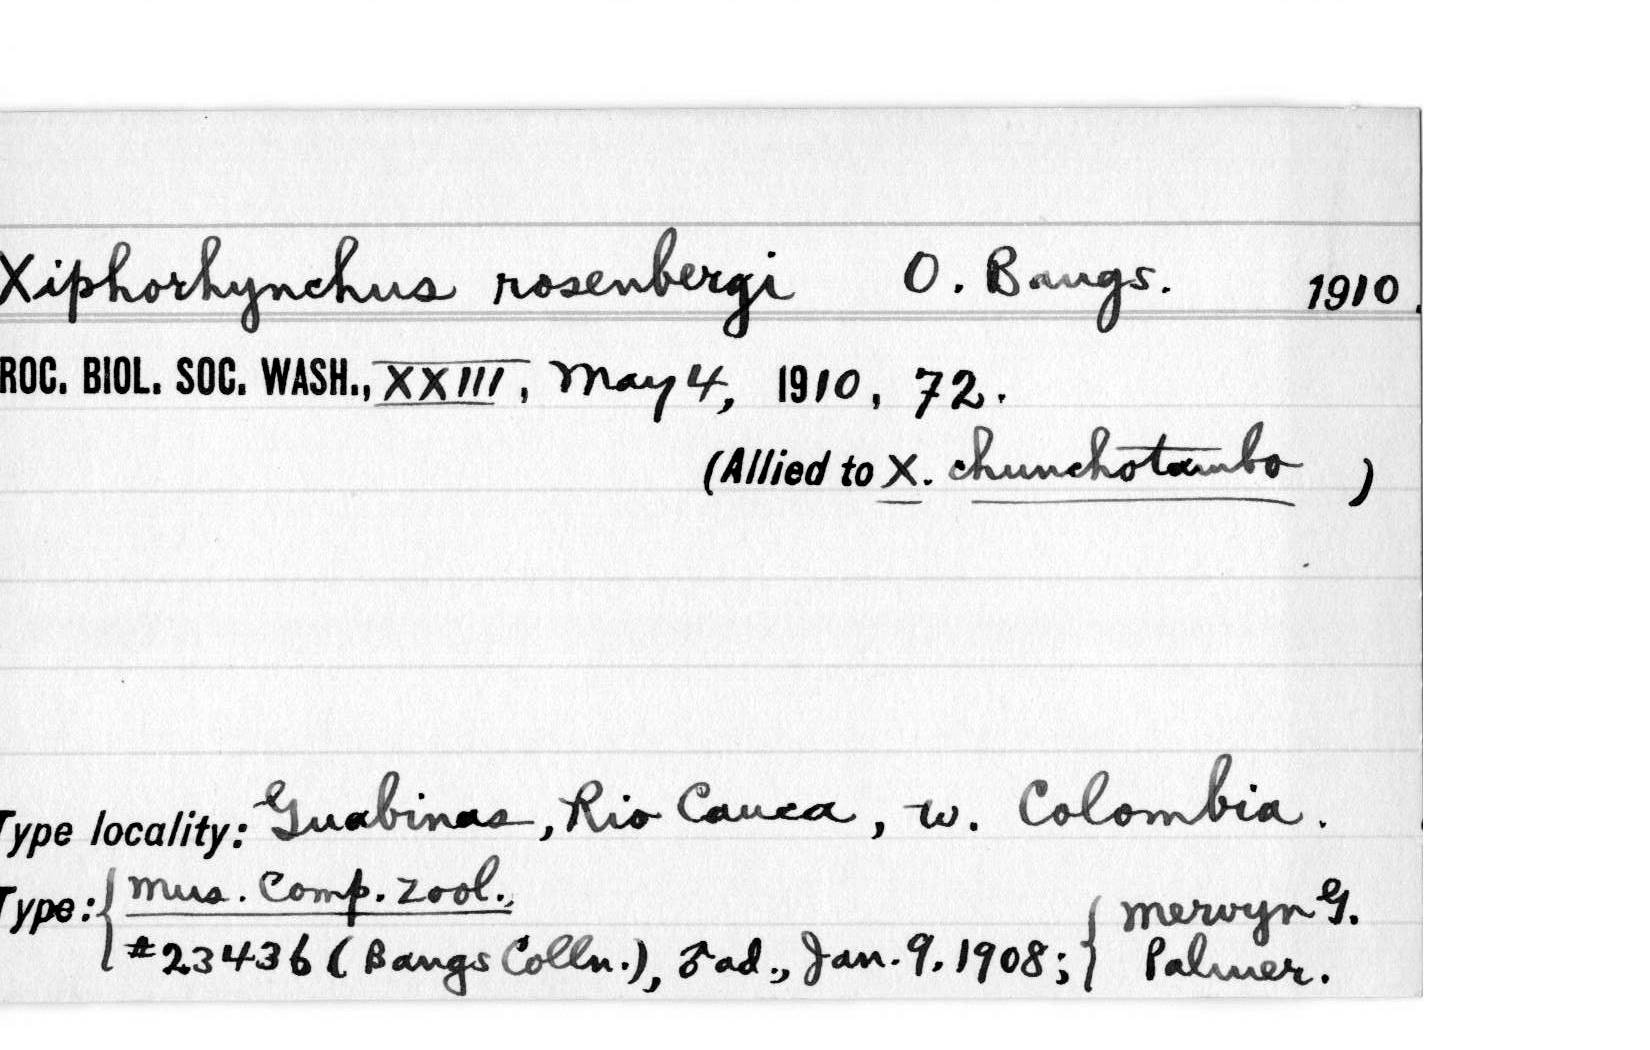 Xiphorhynchus rosenbergi O. Bangs. 1910.
ROC. BIOL. SOC. WASH., XXIII, May 4, 1910, 72.
(Allied to X. chunchotambo )
Type locality: Guabinas, Rio Cauca, w. Colombia.
Type: { Mus. Comp. Zool.,
#23436 (Bangs Colln.), ♂ ad., Jan. 9, 1908; { Mervyn G.
Palmer.